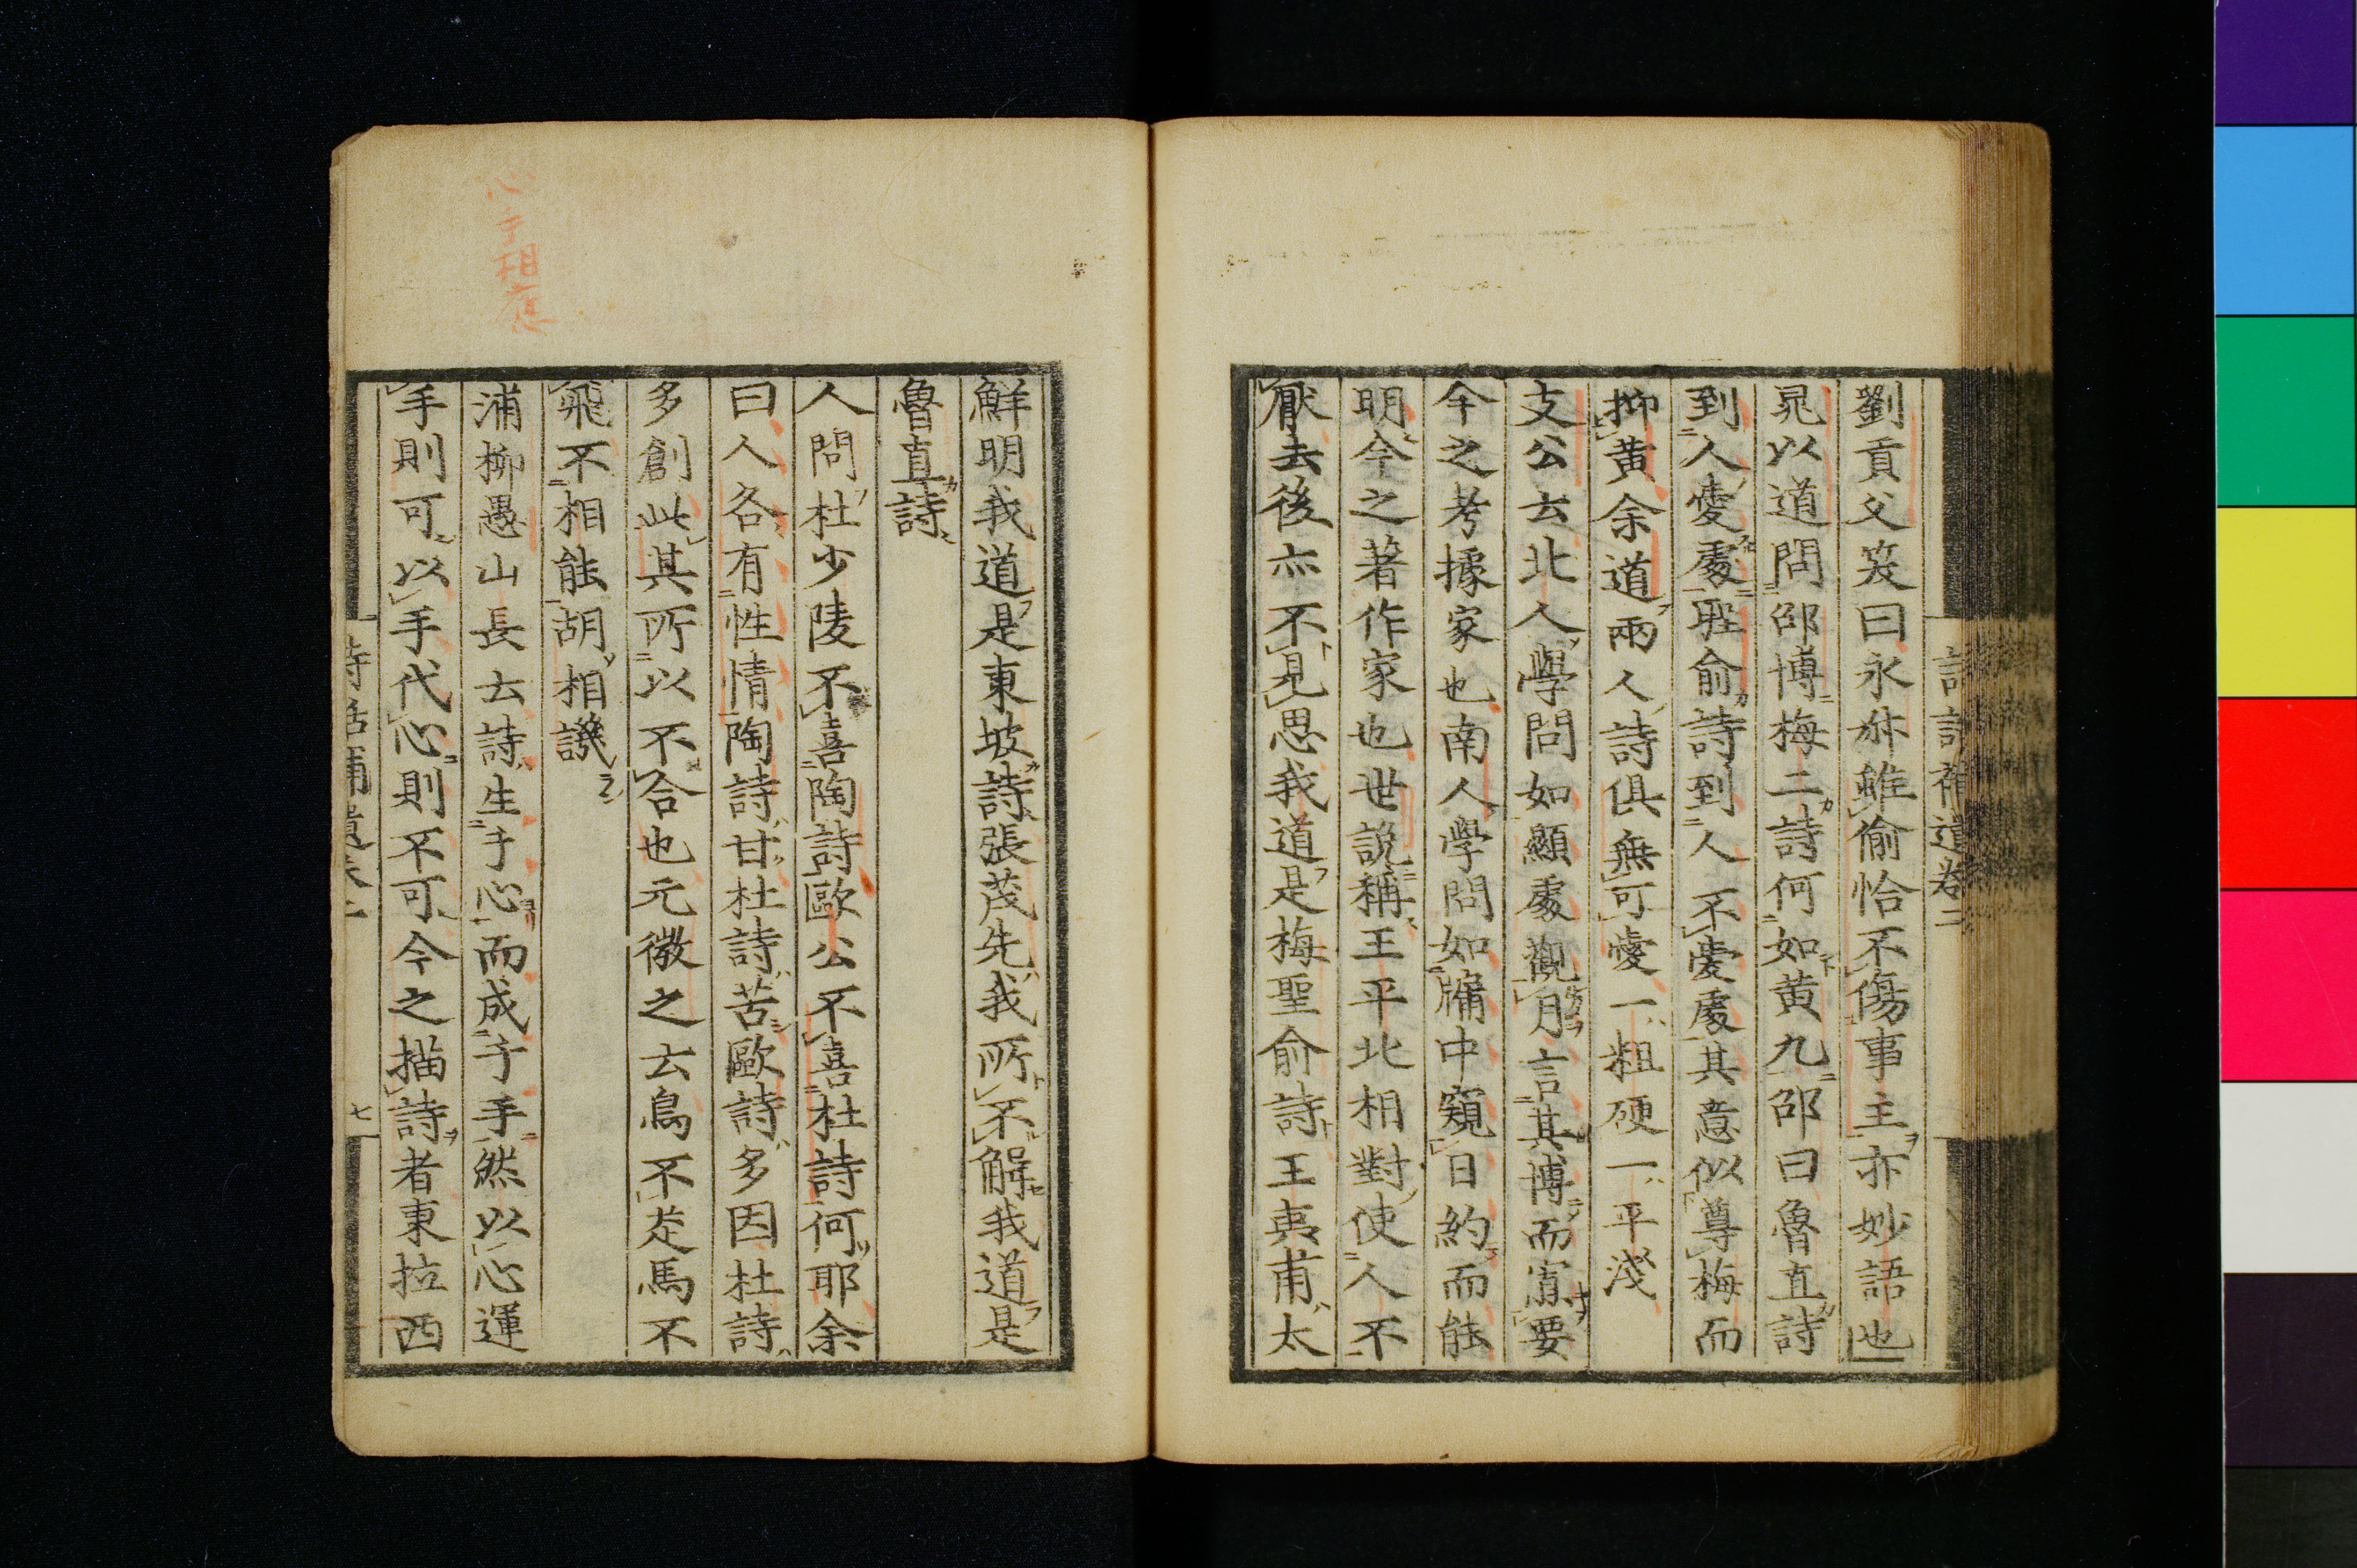 劉貢父笑曰永叔雖偷恰不傷事主亦妙語也
晁以道問邵博梅二詩何如黃九邵曰魯直詩
到人愛處聖俞詩到人不愛處其意似尊梅而
抑黃余道兩人詩俱無可愛一粗硬一平淺
支公云北人學問如顯處觀月言其博而寡要
今之考據家也南人學問如牖中窺日約而能
明今之著作家也世說稱王平北相對使人不
厭去後亦不見思我道是梅聖俞詩王夷甫太
鮮明我道是東坡詩張茂先我所不解我道是
魯直詩
人問杜少陵不喜陶詩歐公不喜杜詩何耶余
曰人各有性情陶詩甘杜詩苦歐詩多因杜詩
多創此其所以不合也元微之云鳥不走馬不
飛不相能胡相譏
浦柳愚山長云詩生于心而成于手然以心運
手則可以手代心則不可今之描詩者東拉西
詩話補遺卷二
七
心手相應